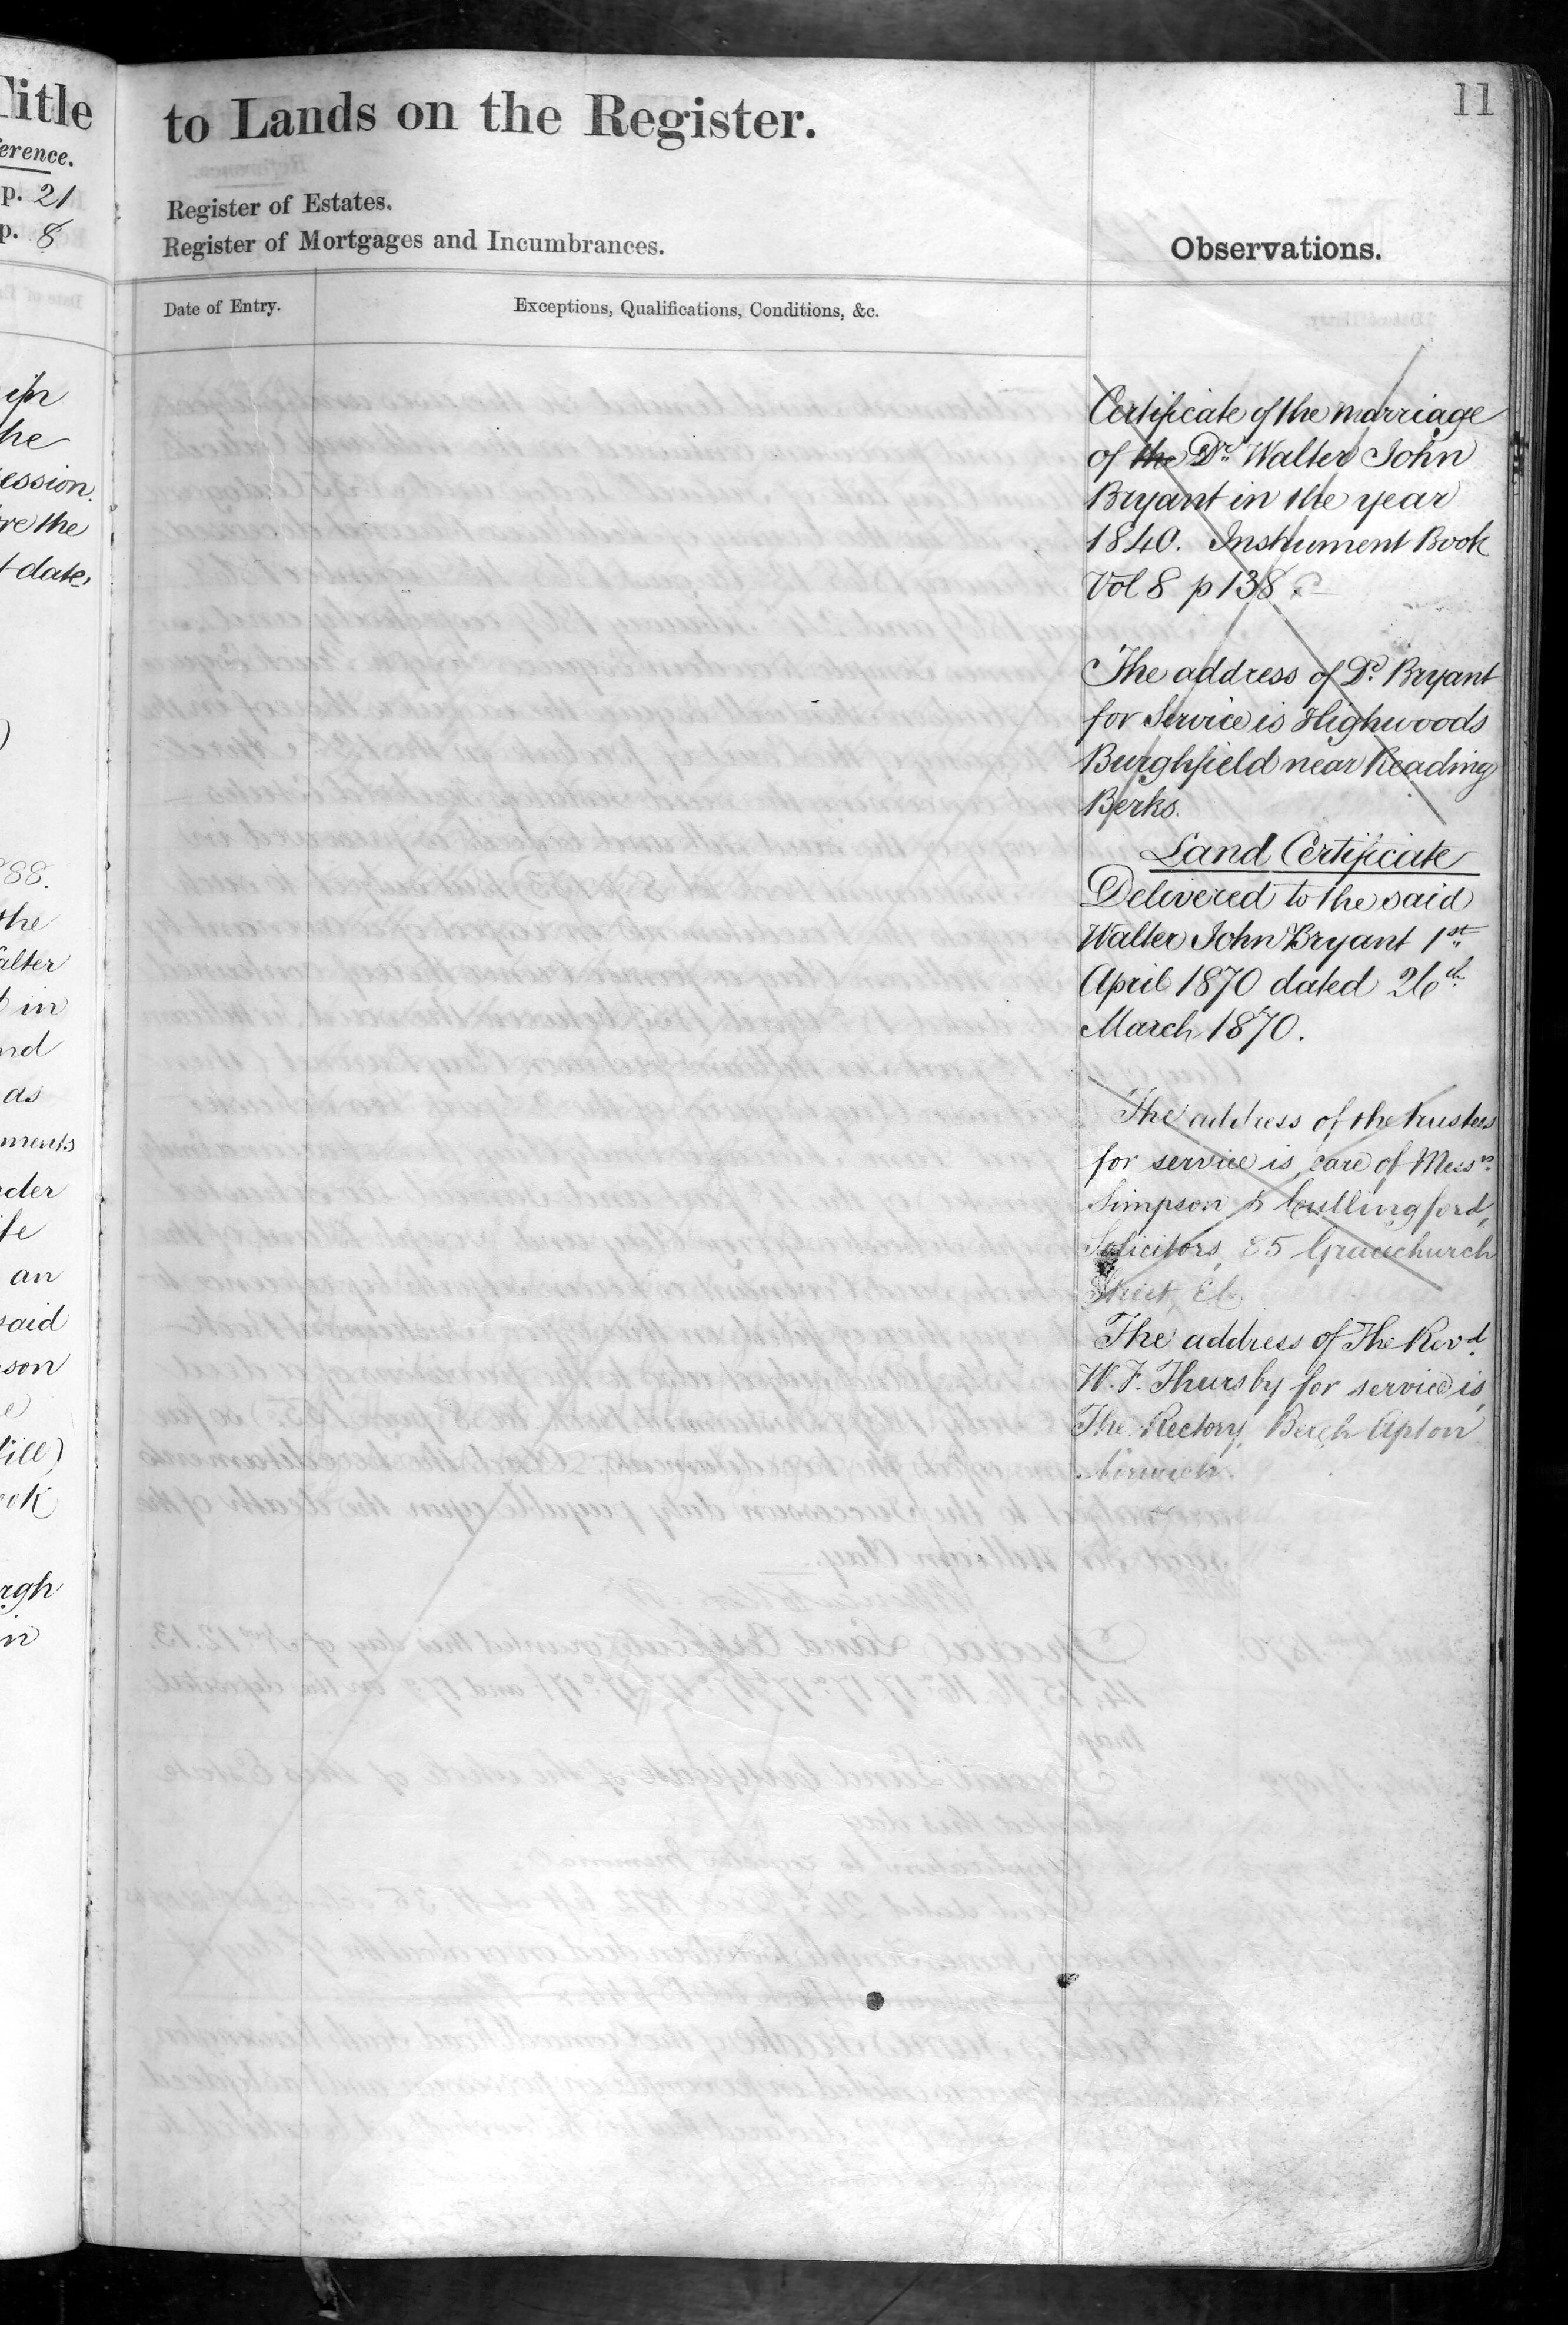 Title
erence.
p. 21
p. 8
in
he
ession.
re the
t date,
)
888.
the
alter
d in
nd
as
ments
nder
ife
an
said
son
e)
Vill)
ook
rgh
in
11
to Lands on the Register.
Register of Estates.
Register of Mortgages and Incumbrances.
Observations.
Date of Entry.
Exceptions, Qualifications, Conditions, &c.
Certificate of the marriage
of the Dr. Walter John
Bryant in the year
1840. Instrument Book
Vol 8 p 138
The address of Dr. Bryant
for Service is Highwoods
Burghfield near Reading
Berks.
Land Certificate
Delivered to the said
Walter John Bryant 1st
April 1870 dated 26th
March 1870.
The address of the trustees
for service is, care of Messrs.
Simpson & Cullingford,
Solicitors, 85 Gracechurch
Street, EC
The address of The Revd.
W. F. Thursby for service is,
The Rectory, Bergh Apton
Norwich.